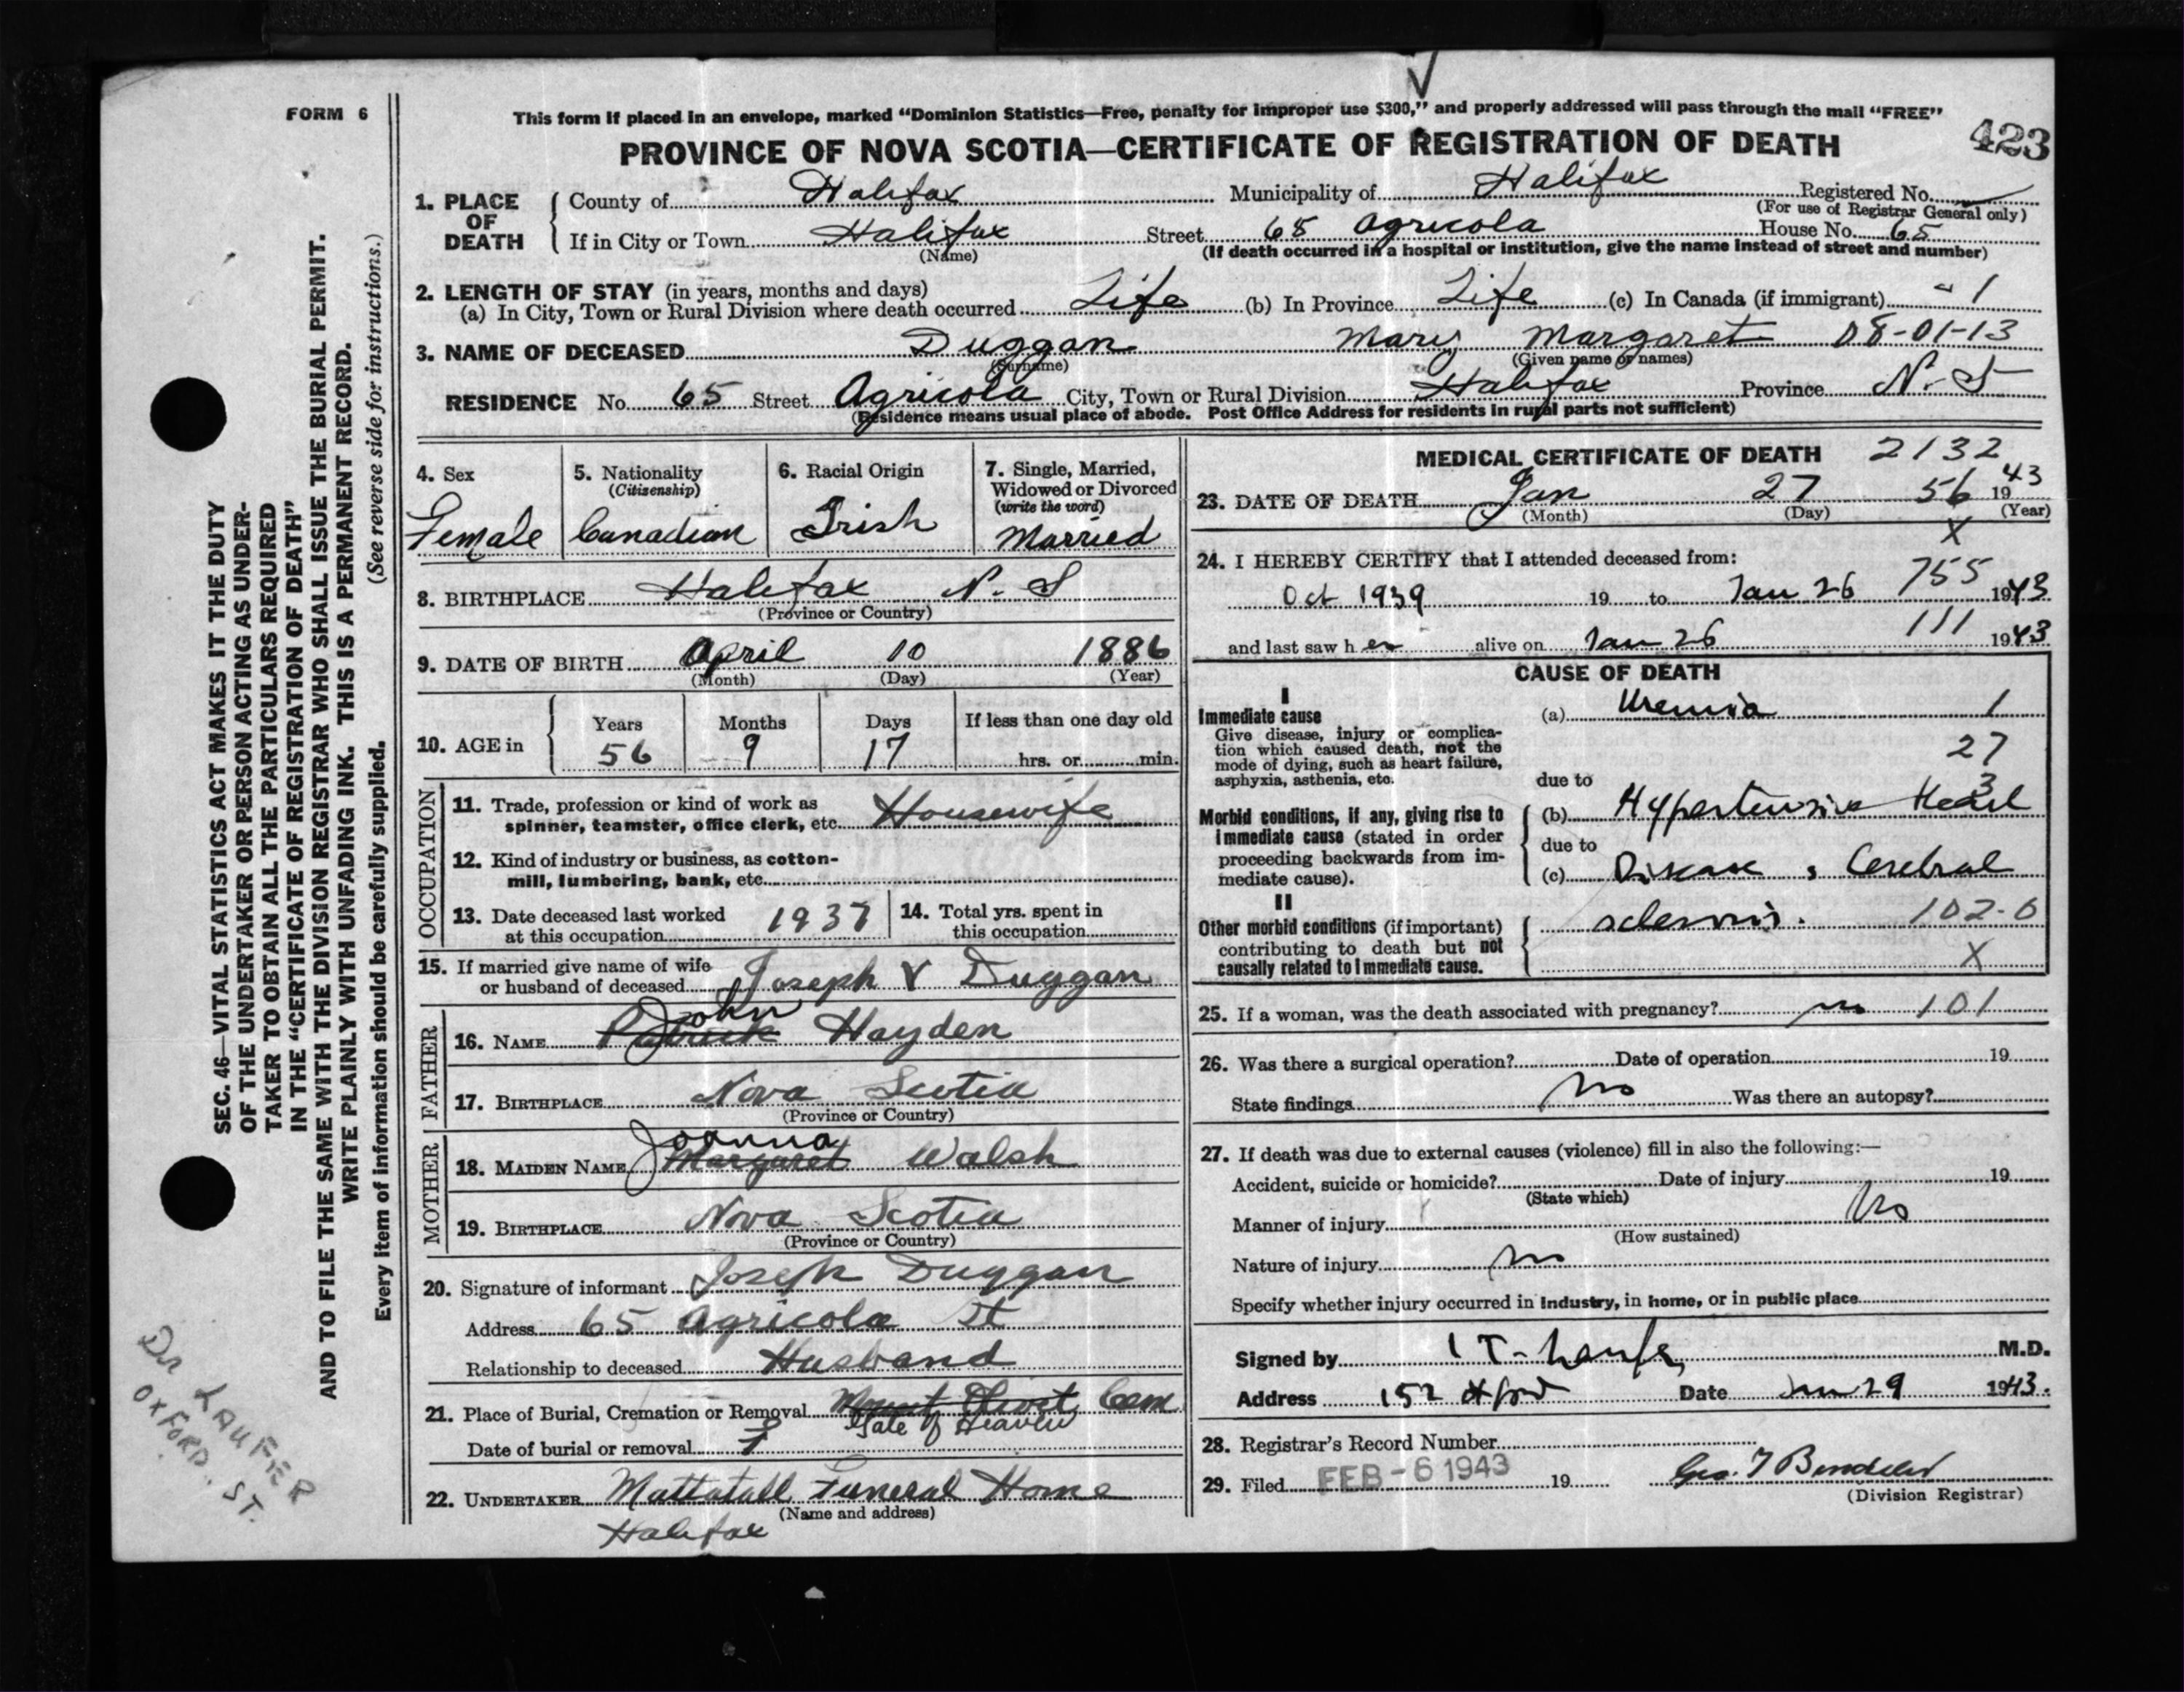 FORM 6
This form if placed in an envelope, marked "Dominion Statistics—Free, penalty for improper use $300," and properly addressed will pass through the mail "FREE"
PROVINCE OF NOVA SCOTIA—CERTIFICATE OF REGISTRATION OF DEATH 423
1. PLACE OF DEATH
County of Halifax Municipality of Halifax Registered No.
(For use of Registrar General only)
If in City or Town Halifax Street 65 Agricola House No. 65
(Name) (If death occurred in a hospital or institution, give the name instead of street and number)
2. LENGTH OF STAY (in years, months and days)
(a) In City, Town or Rural Division where death occurred Life (b) In Province Life (c) In Canada (if immigrant) 1
3. NAME OF DECEASED Duggan Mary Margaret 08-01-13
(Surname) (Given name or names)
RESIDENCE No. 65 Street Agricola City, Town or Rural Division Halifax Province N. S
(Residence means usual place of abode. Post Office Address for residents in rural parts not sufficient)
4. Sex
Female
5. Nationality
(Citizenship)
Canadian
6. Racial Origin
Irish
7. Single, Married,
Widowed or Divorced
(write the word)
Married
8. BIRTHPLACE Halifax N. S
(Province or Country)
9. DATE OF BIRTH April 10 1886
(Month) (Day) (Year)
10. AGE in
Years Months Days If less than one day old
56 9 17 hrs. or min.
OCCUPATION
11. Trade, profession or kind of work as
spinner, teamster, office clerk, etc. Housewife
12. Kind of industry or business, as cotton-
mill, lumbering, bank, etc.
13. Date deceased last worked
at this occupation 1937
14. Total yrs. spent in
this occupation
15. If married give name of wife
or husband of deceased Joseph V Duggan
FATHER
John
16. NAME Patrick Hayden
17. BIRTHPLACE Nova Scotia
(Province or Country)
MOTHER
Joanna
18. MAIDEN NAME Margaret Walsh
19. BIRTHPLACE Nova Scotia
(Province or Country)
20. Signature of informant Joseph Duggan
Address 65 Agricola St
Relationship to deceased Husband
21. Place of Burial, Cremation or Removal Mount Olivet Cem
Gate of Heaven
Date of burial or removal
22. UNDERTAKER Mattatall Funeral Home
(Name and address)
Halifax
MEDICAL CERTIFICATE OF DEATH 2132
23. DATE OF DEATH Jan 27 56 1943
(Month) (Day) (Year)
X
24. I HEREBY CERTIFY that I attended deceased from:
755
Oct 1939 19 to Jan 26 1943
111
and last saw her alive on Jan 26 1943
CAUSE OF DEATH
I
Immediate cause
Give disease, injury or complica-
tion which caused death, not the
mode of dying, such as heart failure,
asphyxia, asthenia, etc.
(a) Uremia 1
27
3
due to
Morbid conditions, if any, giving rise to
immediate cause (stated in order
proceeding backwards from im-
mediate cause).
(b) Hypertensive Heart
due to
(c) Disease, Cerebral
II
Other morbid conditions (if important)
contributing to death but not
causally related to immediate cause.
sclerosis. 102-0
X
25. If a woman, was the death associated with pregnancy? no 101
26. Was there a surgical operation? Date of operation 19
State findings no Was there an autopsy?
27. If death was due to external causes (violence) fill in also the following:—
Accident, suicide or homicide? Date of injury 19
(State which)
Manner of injury No
(How sustained)
Nature of injury no
Specify whether injury occurred in industry, in home, or in public place
Signed by M.D.
Address 152 Date Jan 29 1943.
28. Registrar's Record Number
29. Filed FEB-6 1943 19
(Division Registrar)
SEC. 46—VITAL STATISTICS ACT MAKES IT THE DUTY
OF THE UNDERTAKER OR PERSON ACTING AS UNDER-
TAKER TO OBTAIN ALL THE PARTICULARS REQUIRED
IN THE "CERTIFICATE OF REGISTRATION OF DEATH"
AND TO FILE THE SAME WITH THE DIVISION REGISTRAR WHO SHALL ISSUE THE BURIAL PERMIT.
WRITE PLAINLY WITH UNFADING INK. THIS IS A PERMANENT RECORD.
Every item of information should be carefully supplied. (See reverse side for instructions.)
Dr KAUFER
OXFORD. ST.